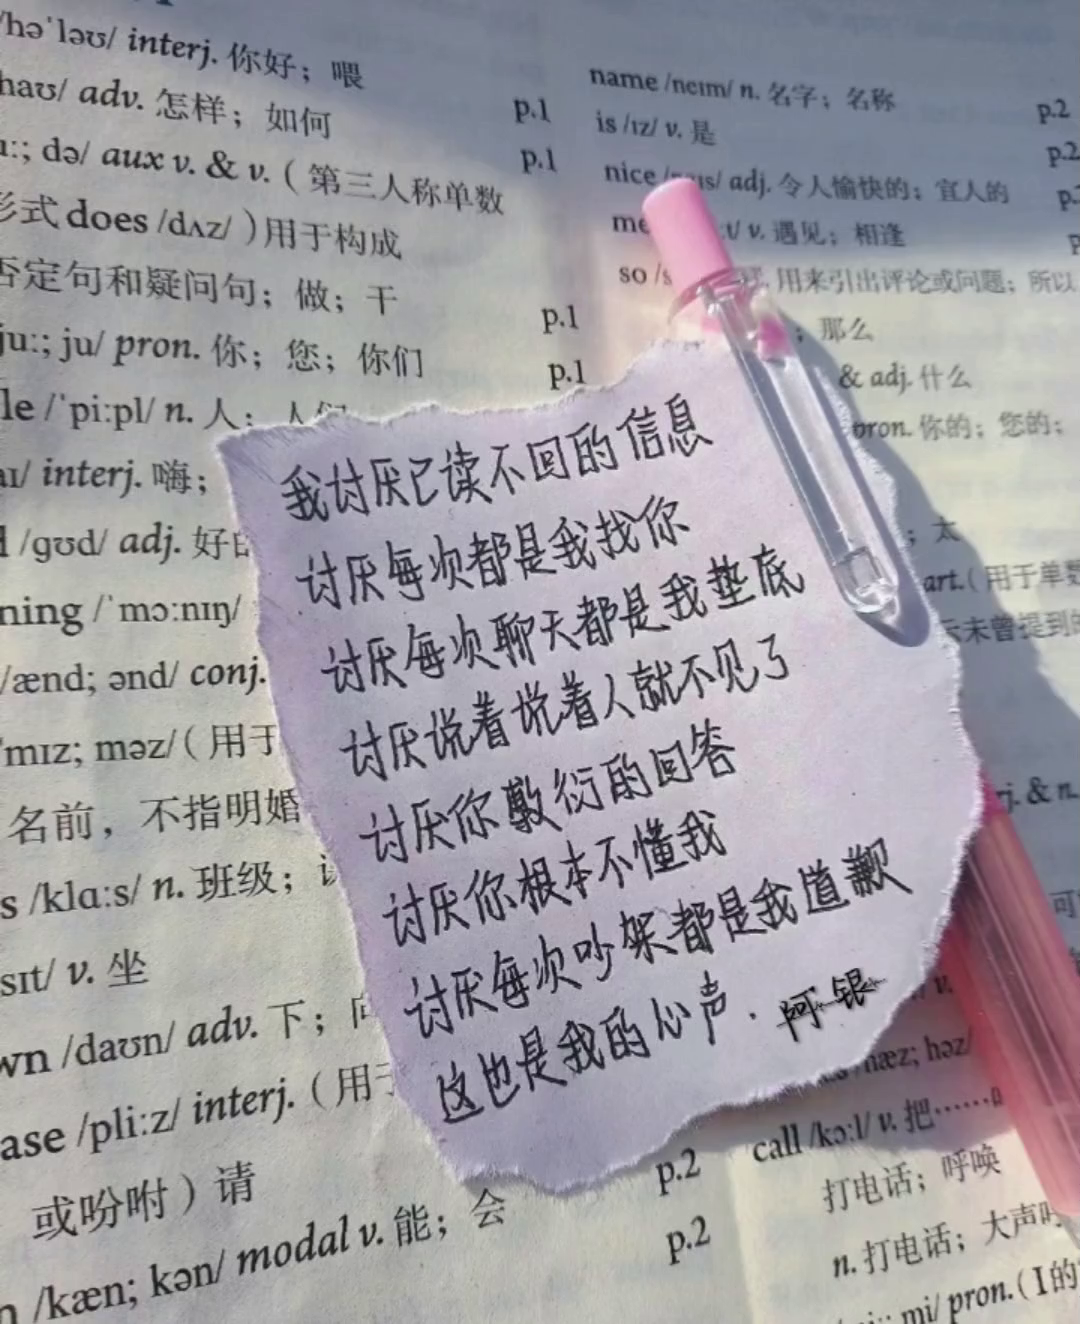 /həˈləʊ/ interj. 你好；喂
haʊ/ adv. 怎样；如何
p.1
də/ aux v. & v.（第三人称单数
p.1
形式 does /dʌz/ ）用于构成
否定句和疑问句；做；干
p.1
juː; ju/ pron. 你；您；你们
p.1
/ˈpiːpl/ n. 人；人们
interj. 嗨；
/ɡʊd/ adj. 好
/ˈmɔːnɪŋ/
/ænd; ənd/ conj.
mɪz; məz/（用于
名前，不指明婚
/klɑːs/ n. 班级；
sɪt/ v. 坐
/daʊn/ adv. 下；向
/pliːz/ interj.（用于
或吩咐）请
p.2
/kæn; kən/ modal v. 能；会
p.2
name /neɪm/ n. 名字；名称
p.2
is /ɪz/ v. 是
p.2
nice adj. 令人愉快的；宜人的
v. 遇见；相逢
so 用来引出评论或问题；所以
；那么
& adj. 什么
pron. 你的；您的；
；太
art.（用于单数
未曾提到的
我讨厌已读不回的信息
讨厌每次都是我找你
讨厌每次聊天都是我垫底
讨厌说着说着人就不见了
讨厌你敷衍的回答
讨厌你根本不懂我
讨厌每次吵架都是我道歉
这也是我的心声. 阿银
& n.
hæz; həz/
call /kɔːl/ v. 把……
打电话；呼唤
n. 打电话；大声呼
mi/ pron.（I的